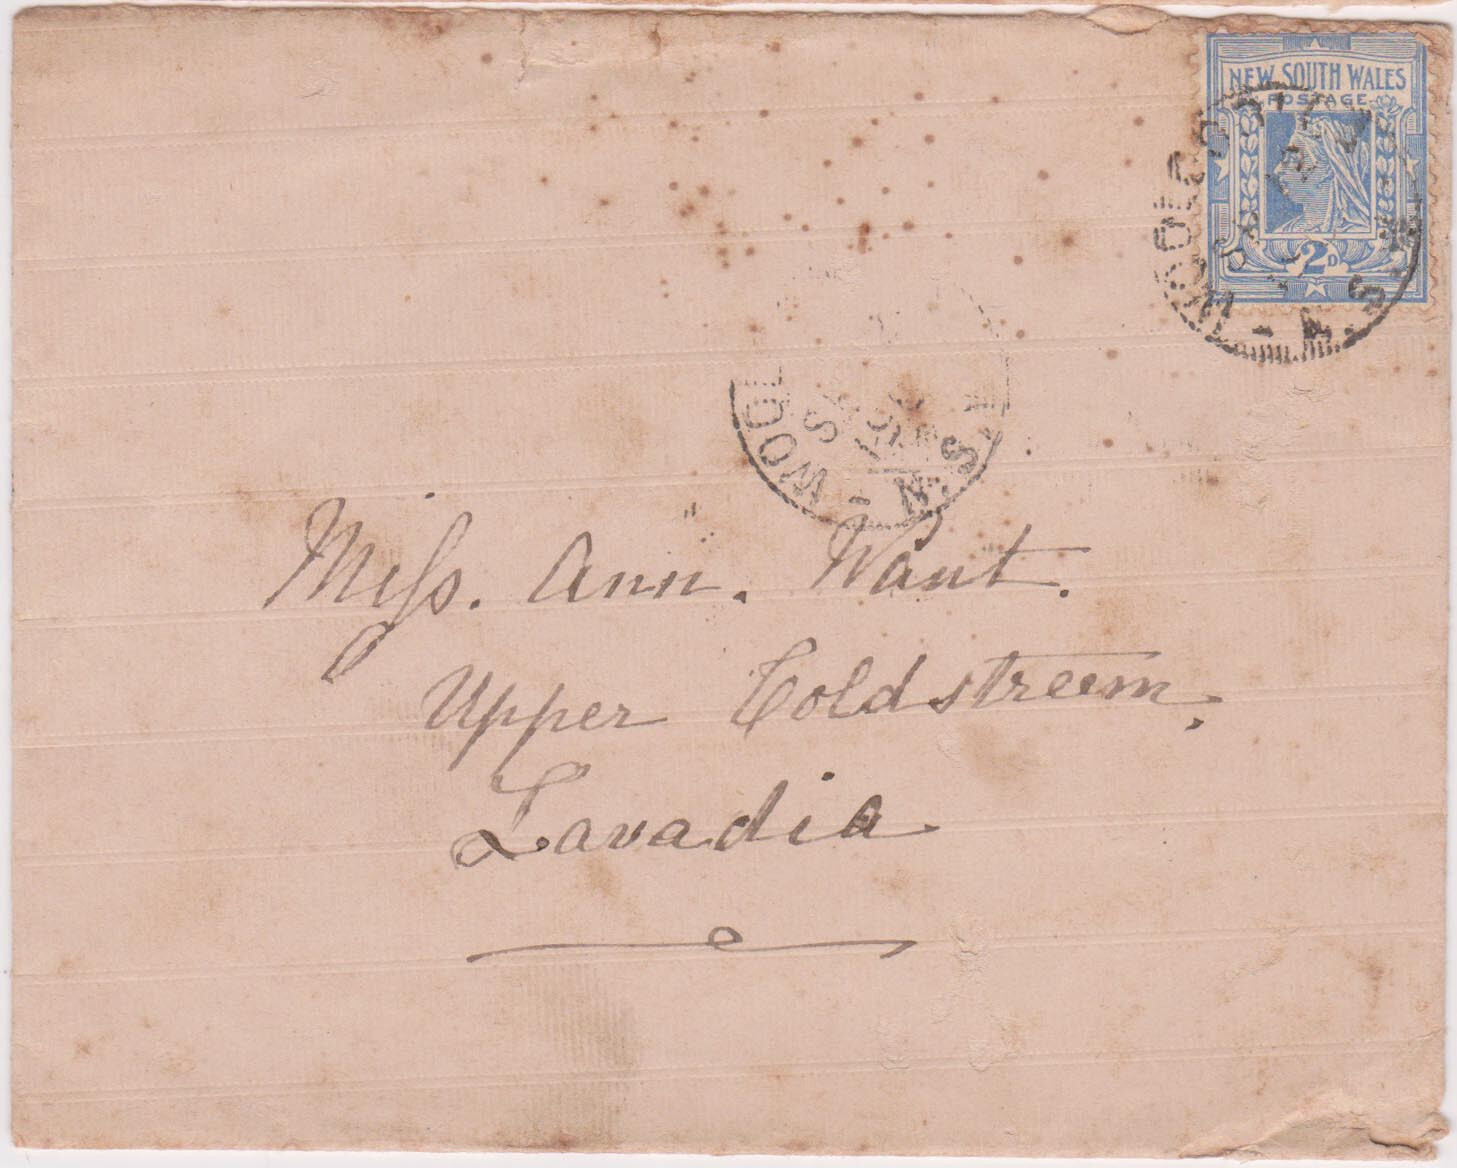 NEW SOUTH WALES
POSTAGE
2D
N.S.W
WOOL
Miss. Ann. Want.
Upper Coldstreem,
Lavadia